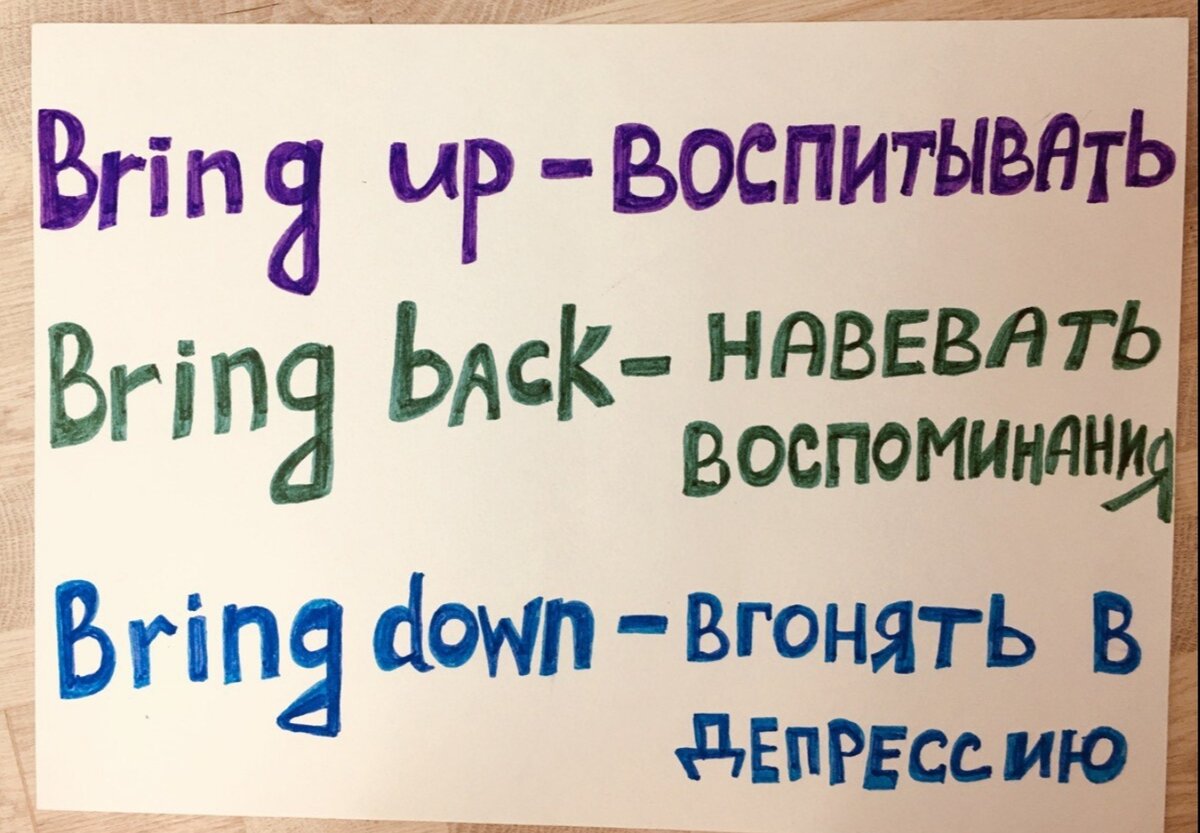 Bring up - ВОСПИТЫВАТЬ
Bring bACK - НАВЕВАТЬ
ВОСПОМИНАНИЯ
Bring down - ВГОНЯТЬ В
ДЕПРЕССИЮ